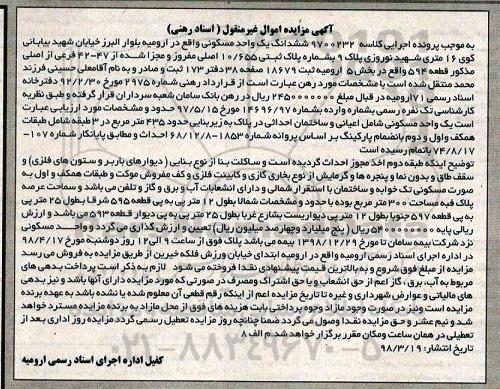 آگهی مزایده اموال غیرمنقول ( اسناد رهنی)
به موجب پرونده اجرایی کلاسه ۹۷۰۰۲۳۲ ششدانگ یک واحد مسکونی واقع در ارومیه بلوار البرز خیابان شهید بیابانی
کوی ۱۶ متری شهید نوروزی پلاک ۹ بشماره پلاک ثبتی ۱۰/۶۵۵ اصلی مفروز و مجزا شده از ۴۷-۴۲ فرعی از اصلی
مذکور قطعه ۵۹۴ واقع در بخش ۵ ارومیه ثبت ۱۸۶۷۹ صفحه ۳۸ دفتر ۱۷۳ ثبت و صادر و به نام آقا معلی حسینی فرزند
محمد منتقل شده است با مشخصات مورد رهن عبارت است از قرارداد رهنی شماره ۲۹۷۵۰ مورخ ۹۲/۲/۳۰ دفترخانه
اسناد رسمی ۷۱ ارومیه در قبال مبلغ ۲۴۵۰۰۰۰۰۰۰ ریال در رهن بانک سامان شعبه سرداران قرار گرفته و طبق نظریه
کارشناسی تک نفره رسمی بشماره وارده بشماره ۱۴۶۹۶ مورخ ۹۷/۵/۱۵ حدود و مشخصات مورد ارزیابی عبارت
است یک واحد مسکونی شامل اعیانی و ساختمان احداثی در پلاک به زیربنایی حدود ۴۳۵ متر مربع در ۳ طبقه شامل طبقات
همکف و اول و دوم با انضمام پارکینگ بر اساس پروانه شماره ۱۸۵۳-۶۸/۱۲/۸ احداث و مطابق پایانکار شماره ۱۰۷-
۷۴/۸/۱۷ باتمام رسیده است
توضیح اینکه طبقه دوم اخذ مجوز احداث گردیده است و ساکلت بنا از نوع بنایی ( دیوارهای باربر و ستون های فلزی) و
سقف طاق و بدون نما و پنجره ها و گرمایش از نوع بخاری گازی و کابینت فلزی و کف مفروش موکت و طبقات همکف و اول به
صورت مسکونی تک خوابه و ساختمان با استقرار شمالی و دارای انشعابات آب و برق و گاز و تلفن می باشد و سماحت عرصه
پلاک فوق به مساحت ۳۰۰ متر مربع بوده با حدود و مشخصات شمالا بطول ۱۲ متر پی به پی قطعه ۵۹۵ شرقا بطول ۲۵ متر پی
به پی قطعه ۵۹۷ جنوبا بطول ۱۲ متر پی دیواریست بشارع غربا بطول ۲۵ متر پی به پی دیوار قطعه ۵۹۳ می باشد و ارزش
ریالی پایه ۵۴۰۰۰۰۰۰۰۰ ریال ( پنج میلیارد و چهارصد میلیون ریال) تعیین و ارزش گذاری می گردد و واحد مسکونی
نزد شرکت بیمه سامان تا مورخ ۱۳۹۸/۱۲/۲۹ بیمه می باشد پلاک فوق از ساعت ۹ الی ۱۲ روز دوشنبه مورخ ۹۸/۴/۱۷
در اداره اجرای اسناد رسمی ارومیه واقع در ارومیه ابتدای خیابان ورزش فلکه خیرین از طریق مزایده به فروش می رسد
مزایده از مبلغ فوق شروع و به بالاترین قیمت پیشنهادی نقدا فروخته می شود لازم بذکر است پرداخت بدهی های
مربوط به آب، برق، گاز اعم از حق انشعاب و یا حق اشتراک و مصرف در صورتی که مورد مزایده دارای آنها باشد و نیز بدهی
های مالیاتی و عوارض شهرداری و غیره تا تاریخ مزایده اعم از اینکه رقم قطعی آن معلوم شده یا نشده باشد به عهده برنده
مزایده است و نیز در صورت وجود مازاد وجوه پرداختی بابت هزینه های فوق از محل مازاد به برنده مزایده مسترد خواهد
شد و نیم عشر و حق مزایده نقدا وصول می گردد ضمنا چنانچه روز مزایده تعطیل رسمی گردد مزایده روز اداری بعد از
تعطیلی در همان ساعت و مکان مقرر برگزار خواهد شد. م الف ۸
تاریخ انتشار: ۹۸/۳/۱۹
کفیل اداره اجرای اسناد رسمی ارومیه
۰۲۱-۸۸۳۴۹۶۷۰-۵